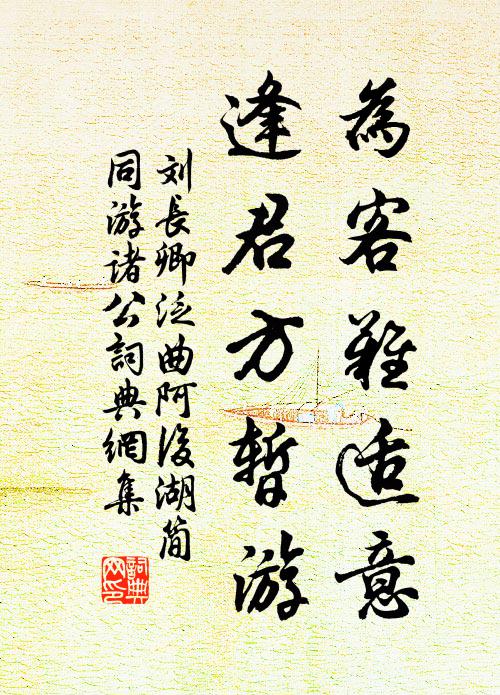 為客難适意
逢君方暫游
刘長卿泛曲阿後湖简
同游诸公詞典網集
詞典网印